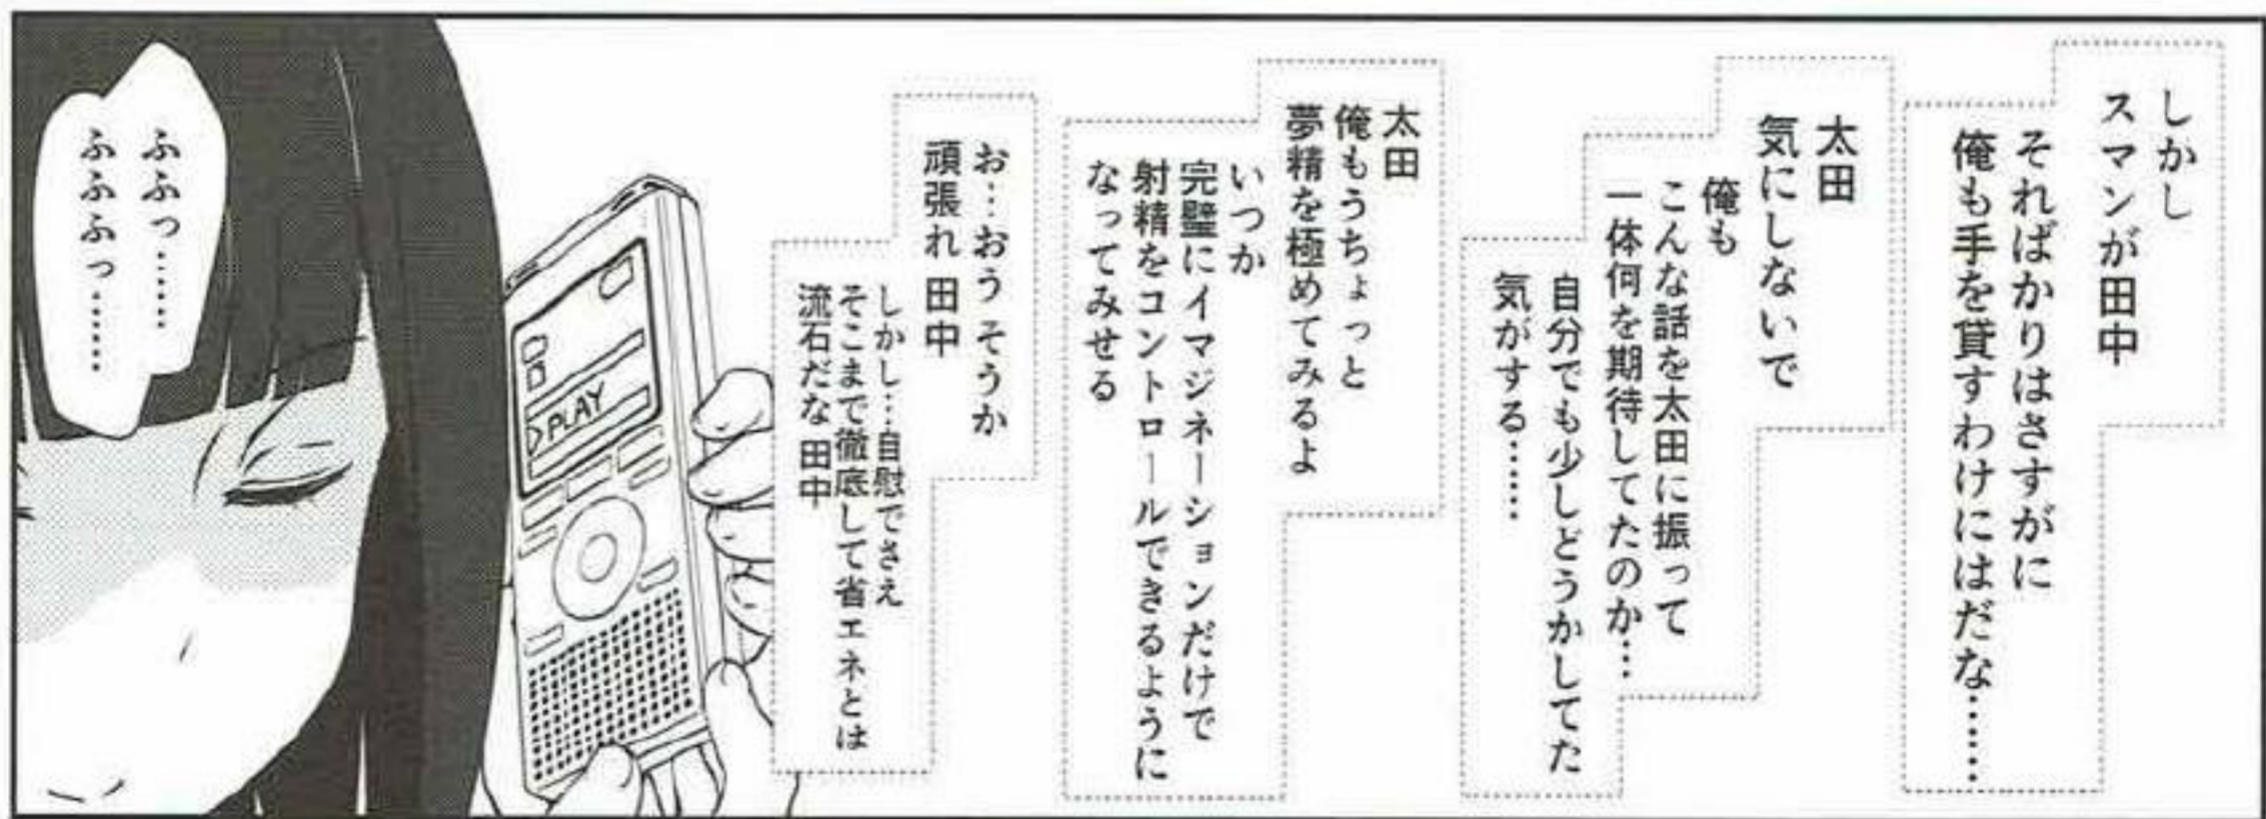 しかし
スマンが田中
そればかりはさすがに
俺も手を貸すわけにはだな……
太田
気にしないで
俺も
こんな話を太田に振って
一体何を期待してたのか…
自分でも少しどうかしてた
気がする……
太田
俺もうちょっと
夢精を極めてみるよ
いつか
完璧にイマジネーションだけで
射精をコントロールできるように
なってみせる
お…おうそうか
頑張れ田中
しかし…自慰でさえ
そこまで徹底して省エネとは
流石だな田中
PLAY
ふふっ……
ふふふっ……